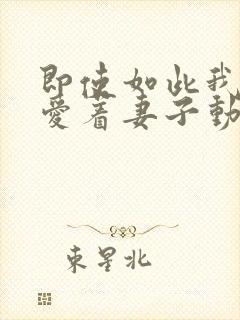 即使如此我
爱着妻子動
東星北